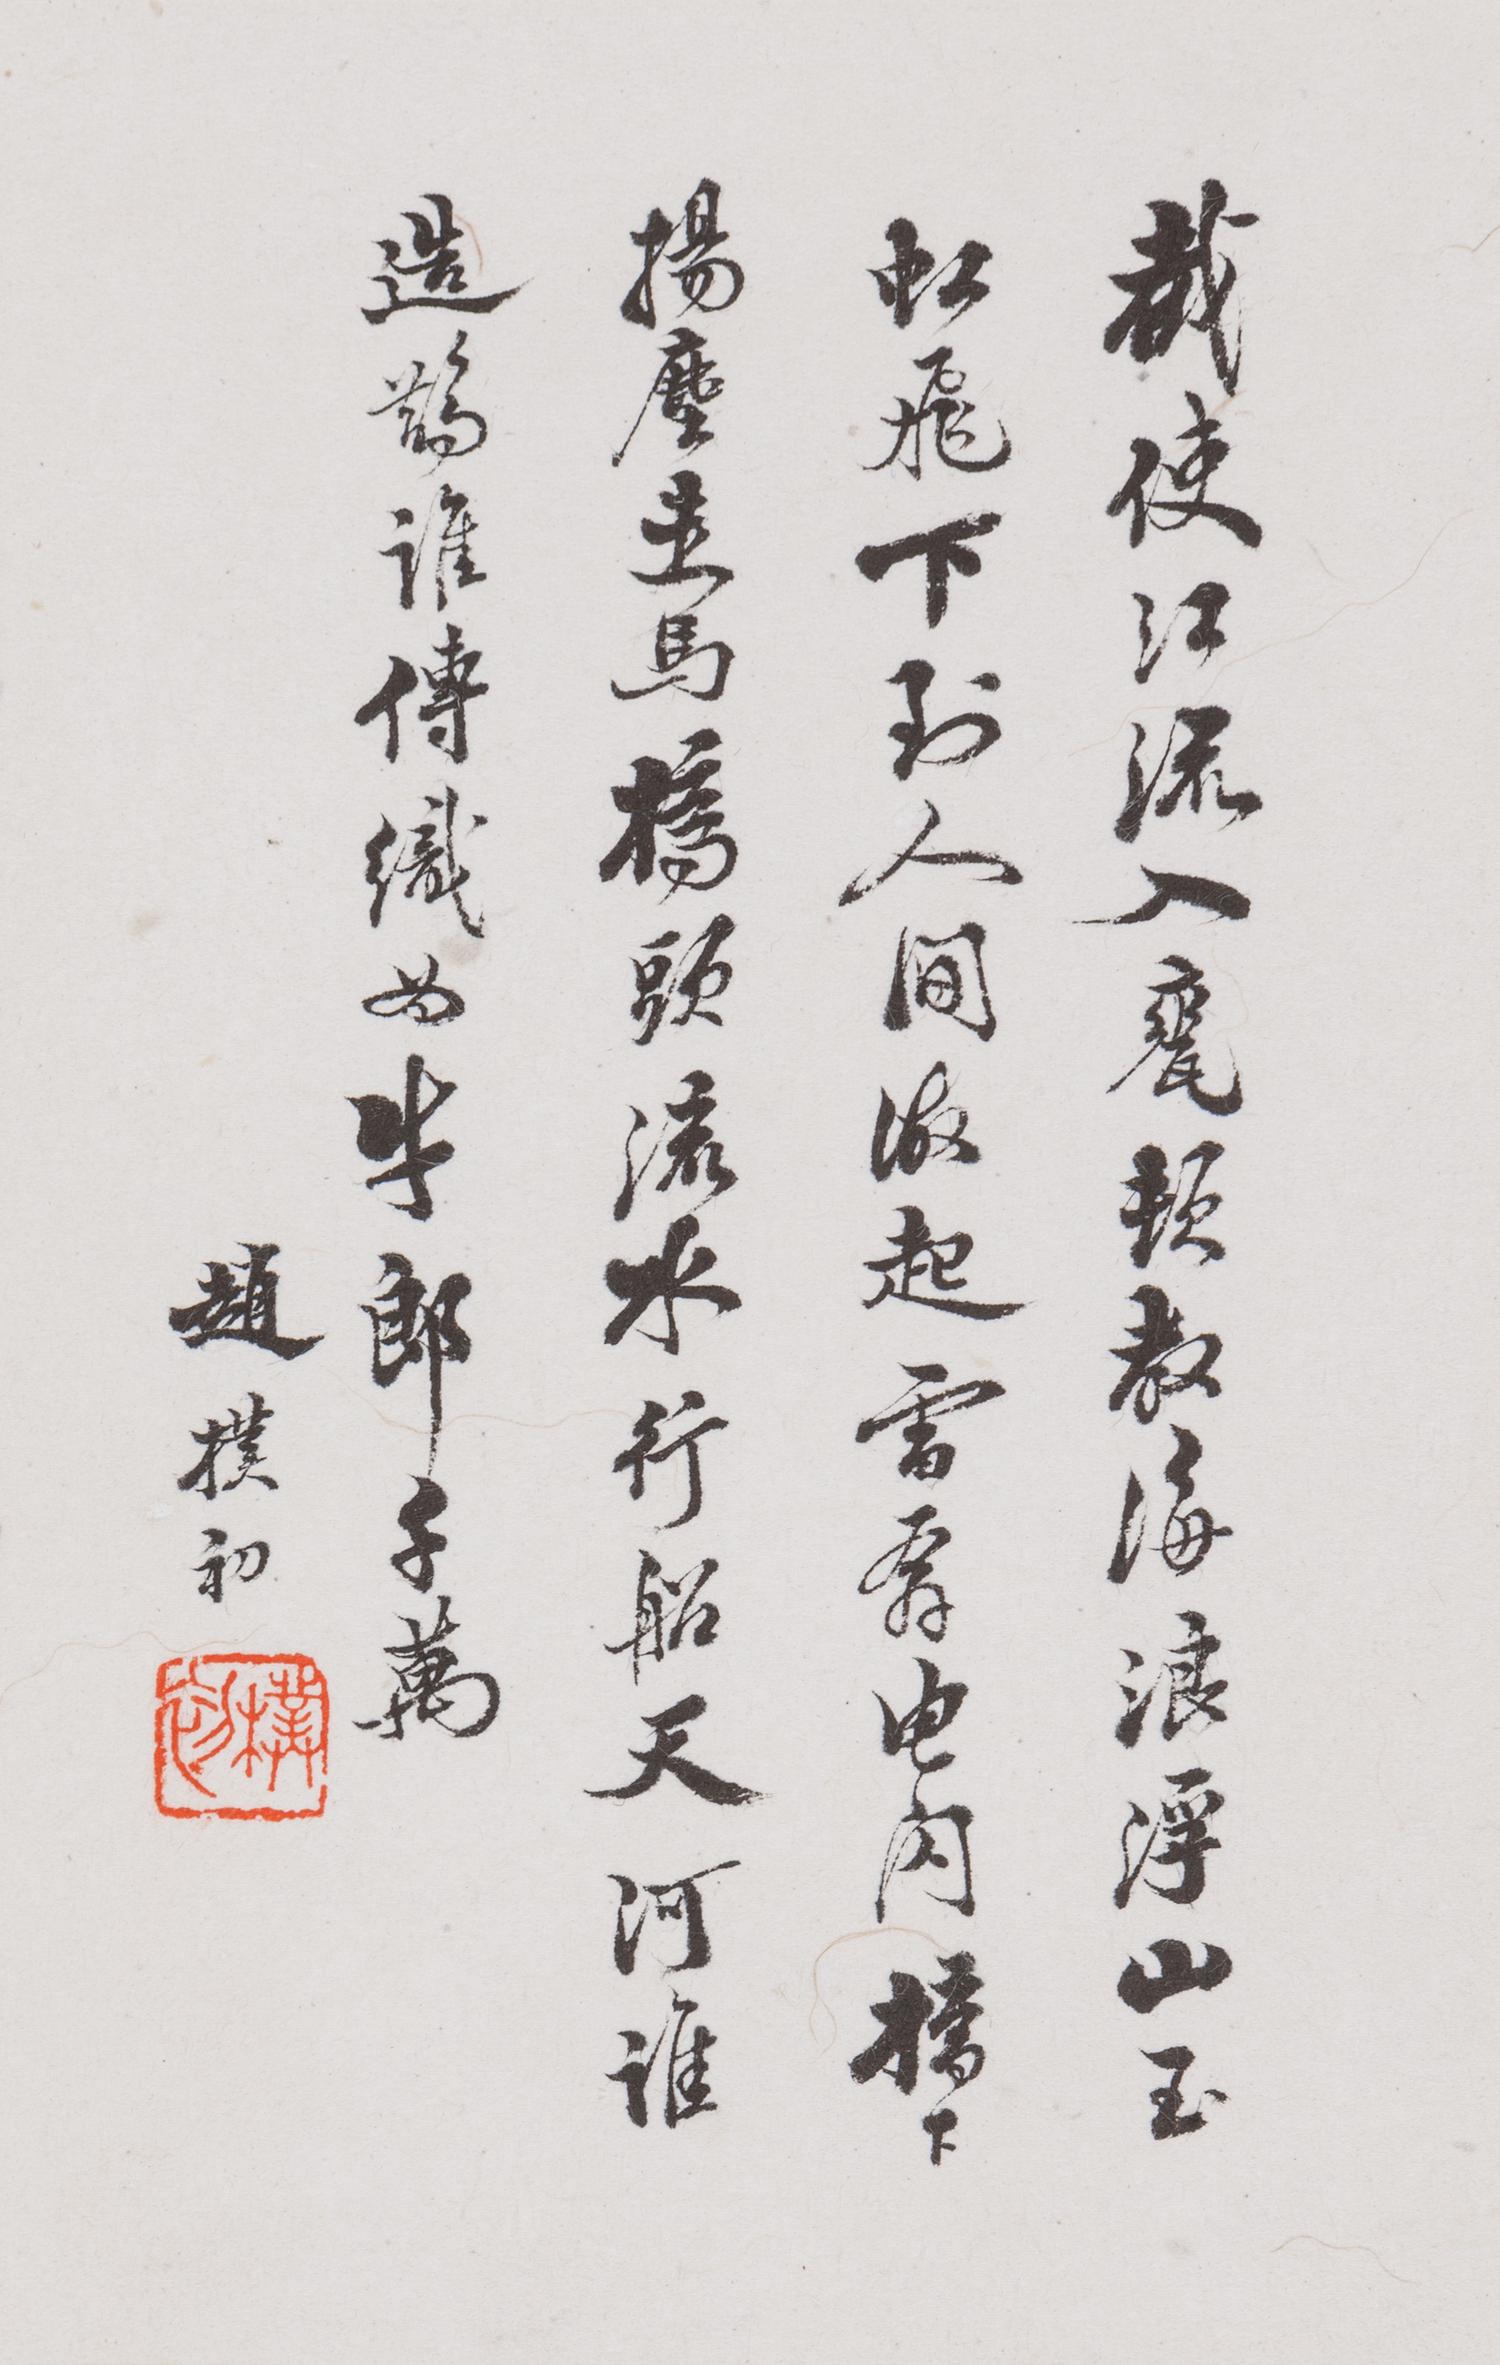 截使江流入甕頸教海浪浮山玉
虹飛下到人間激起雷奔电闪橋下
揚塵走馬橋頭流水行船天河誰
造鵲誰傳織女牛郎千萬
趙樸初
樸初